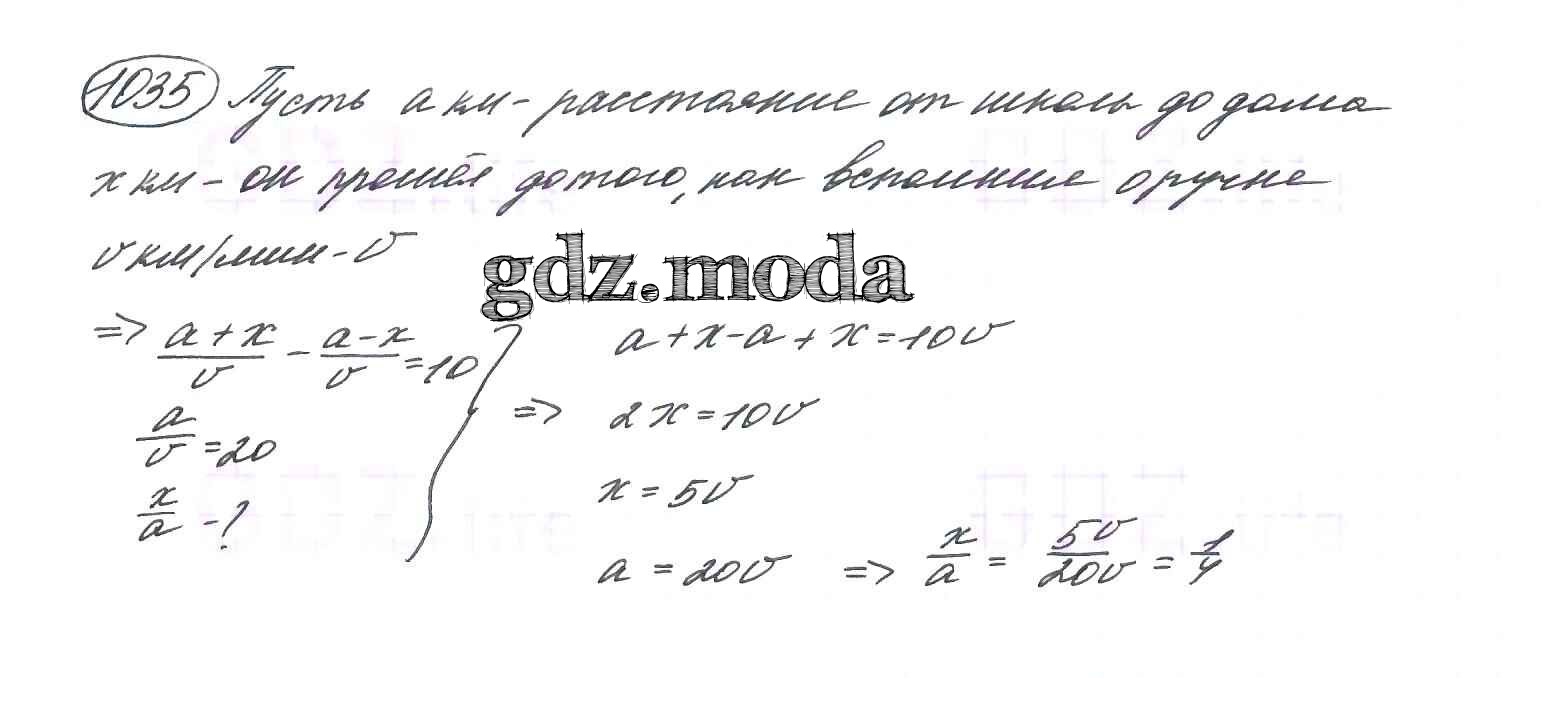 1035 Пусть a км - расстояние от школы до дома
x км - он прошёл до того, как вспомнил о ручке
v км/мин - v
gdz.moda
=> (a + x)/v - (a - x)/v = 10
a/v = 20
x/a - ?
=> a + x - a + x = 10v
2x = 10v
x = 5v
a = 20v => x/a = 5v/20v = 1/4